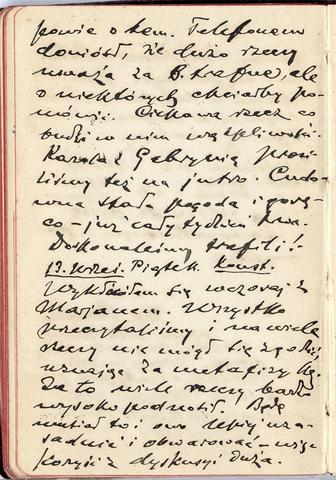 powie o tem. Telefonem
doniósł, że dużo rzeczy
uważa za b. trafne, ale
o niektórych chciałby po-
mówić. Ciekawa rzecz co
budzi w nim wątpliwości.
Karola z Gabrynią prosi-
liśmy też na jutro. Cudo-
wna stała pogoda i gorą-
co - już cały tydzień trwa.
Doskonaleśmy trafili!
13. Wrześ. Piątek. Konst.
się wczoraj z
Marjanem. Wszystko
przeczytaliśmy i na wiele
rzeczy nie mógł się zgodzić,
uznając za metafizykę.
Za to wiele rzeczy bardzo
wysoko podnosił. Będę
musiał to i owo lepiej uza-
sadnić i obwarować - więc
korzyść z dyskusyi duża.